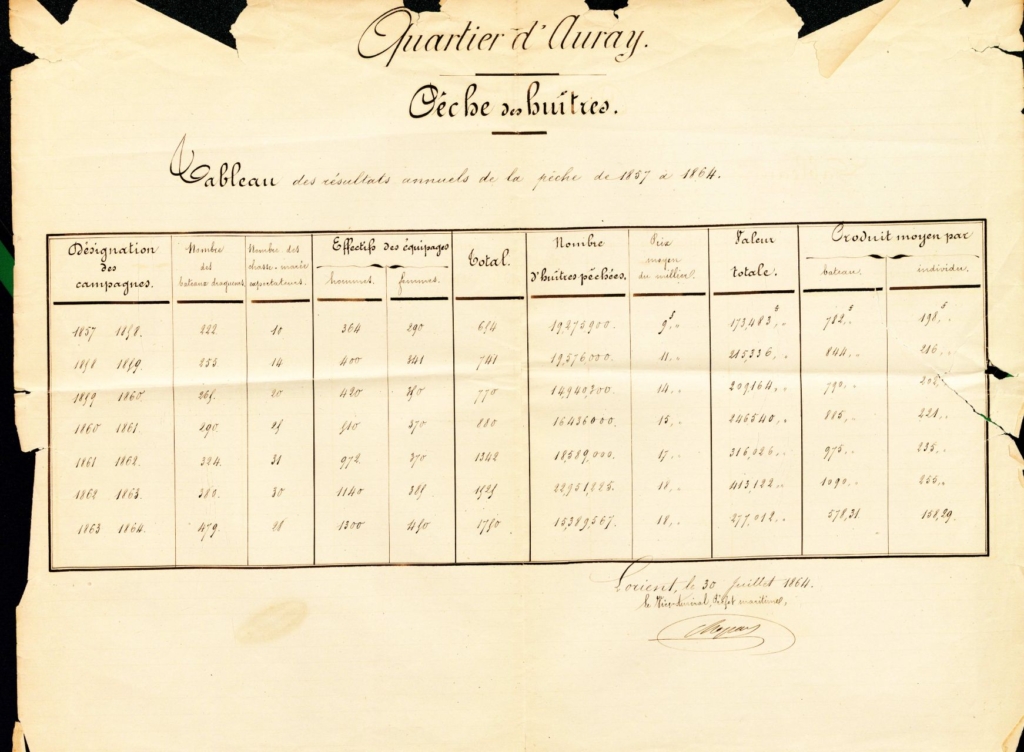 Quartier d'Auray.
Pêche des huîtres.
Tableau des résultats annuels de la pêche de 1857 à 1864.
Désignation des campagnes. | Nombre des bateaux dragueurs | Nombre des chasse-marée | Effectifs des équipages hommes. | femmes. | Total. | Nombre d'huîtres pêchées. | Prix moyen du millier. | Valeur totale. | Produit moyen par bateau. | individu.
1857 1858. 222 10 364 290 654 19,275,900 9,, 173,483,, 782,, 198,,
1858 1859. 255 14 400 341 741 19,576,000 11,, 215,336,, 844,, 216,,
1859 1860. 265 20 420 350 770 14,940,300 14,, 209,164,, 790,,
1860 1861 290 25 510 370 880 16436000. 15,, 246540,, 885,, 221,,
1861 1862. 324 31 972 370 1342 18,589,000. 17,, 316,026,, 975,, 235,,
1862 1863. 380 30 1140 385 1525 22,951,225. 18,, 413,122,, 1090,, 255,,
1863 1864. 479 28 1300 450 1750 15,389,567. 18,, 277,012,, 578,31 158,29
Lorient, le 30 juillet 1864.
le Vice-amiral, Préfet maritime,